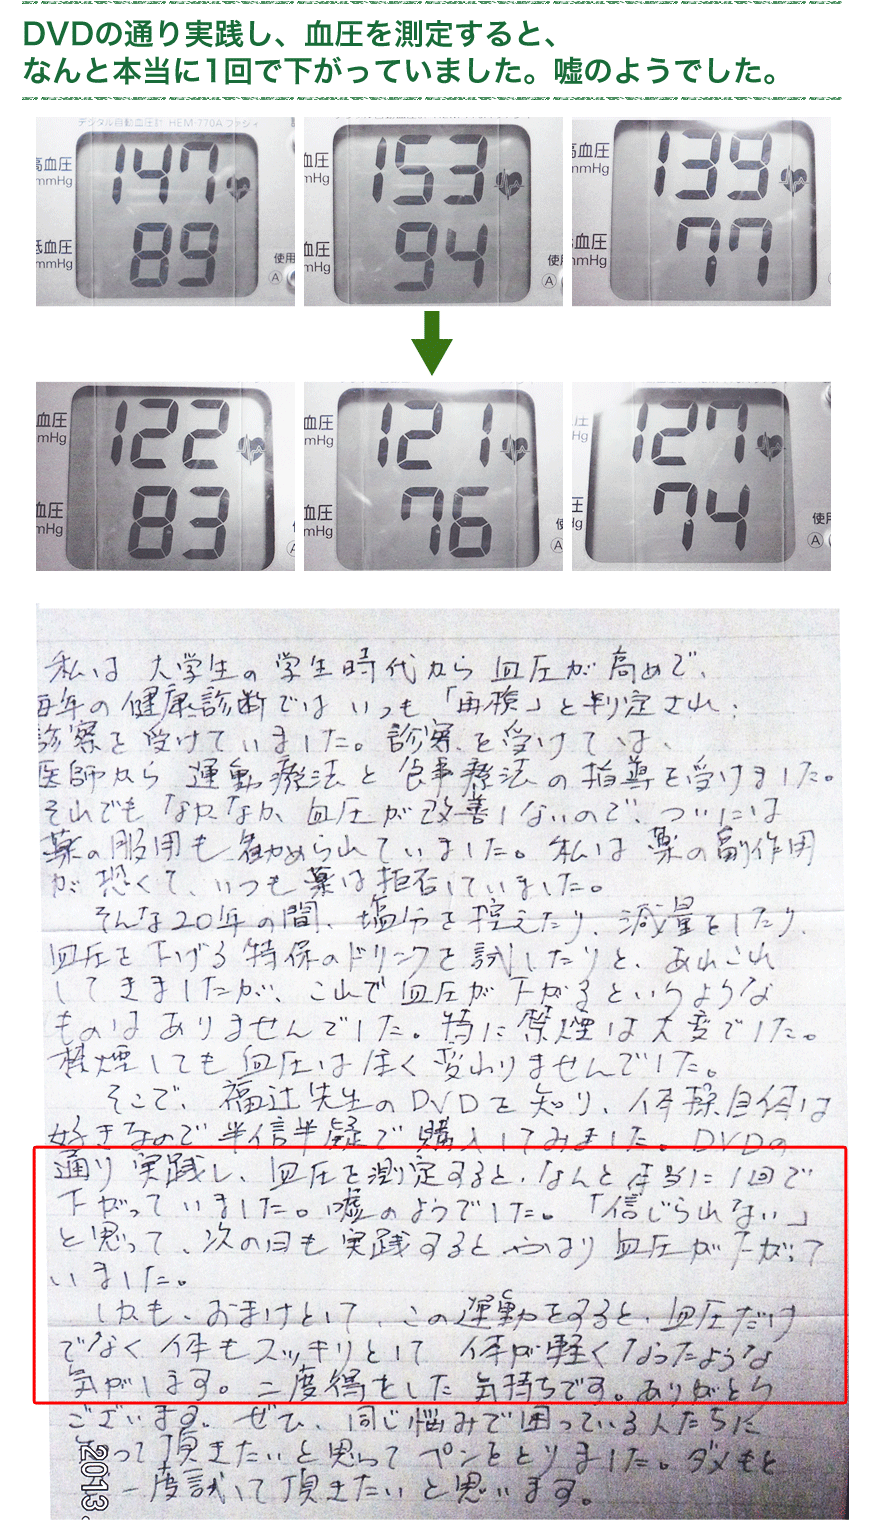 DVDの通り実践し、血圧を測定すると、
なんと本当に1回で下がっていました。嘘のようでした。
デジタル自動血圧計 HEM-770Aファジィ
高血圧
mmHg
147
血圧
mmHg
89
使用
A
血圧
mmHg
153
血圧
mmHg
94
使用
A
高血圧
mmHg
139
血圧
mmHg
77
血圧
mHg
122
血圧
mHg
83
A
血圧
mHg
121
血圧
mHg
76
使
A
圧
Hg
127
圧
Hg
74
使用
A
私は 大学生の学生時代から 血圧が高めで、
毎年の健康診断では いつも「再検」と判定され、
診察を受けていました。診察を受けては、
医師から 運動療法と食事療法の指導を受けました。
それでも なかなか 血圧が改善しないので、ついには
薬の服用も勧められていました。私は薬の副作用
が恐くて、いつも薬は拒否していました。
そんな20年の間、塩分を控えたり、減量をしたり、
血圧を下げる特保のドリンクを試したりと、あれこれ
してきましたが、これで血圧が下がるというような
ものはありませんでした。特に禁煙は大変でした。
禁煙しても血圧は全く変わりませんでした。
そこで、福辻先生のDVDを知り、体操自体は
好きなので半信半疑で購入してみました。DVDの
通り実践し、血圧を測定すると、なんと本当に1回で
下がっていました。嘘のようでした。「信じられない」
と思って、次の日も実践するとやはり血圧が下がって
いました。
しかも、おまけとして、この運動をすると、血圧だけ
でなく体もスッキリとして 体が軽くなったような
気がします。二度得をした気持ちです。ありがとう
ございます。ぜひ、同じ悩みで困っている人たちに
って頂きたいと思ってペンをとりました。ダメもと
一度試して頂きたいと思います。
2013.